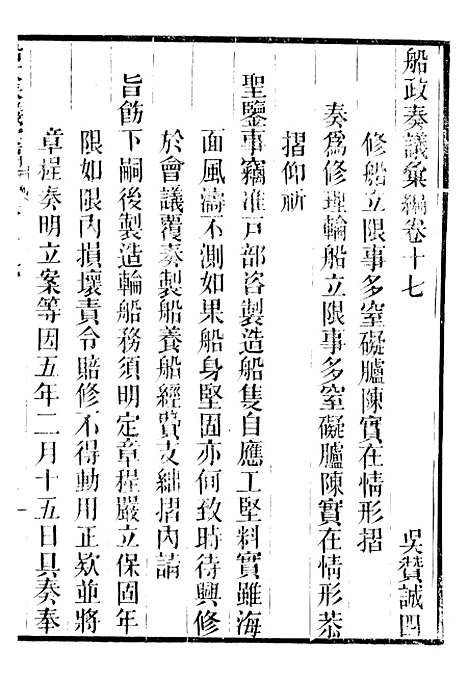 船政奏議彙編卷十七
吳贊誠四
修船立限事多窒礙臚陳實在情形摺
奏爲修理輪船立限事多窒礙臚陳實在情形恭
摺仰祈
聖鑒事竊准戶部咨製造船隻自應工堅料實雖海
面風濤不測如果船身堅固亦何致時待興修
於會議覆奏製船養船經費支絀摺內請
旨飭下嗣後製造輪船務須明定章程嚴立保固年
限如限內損壞責令賠修不得動用正欵並將
章程奏明立案等因五年二月十五日具奏奉